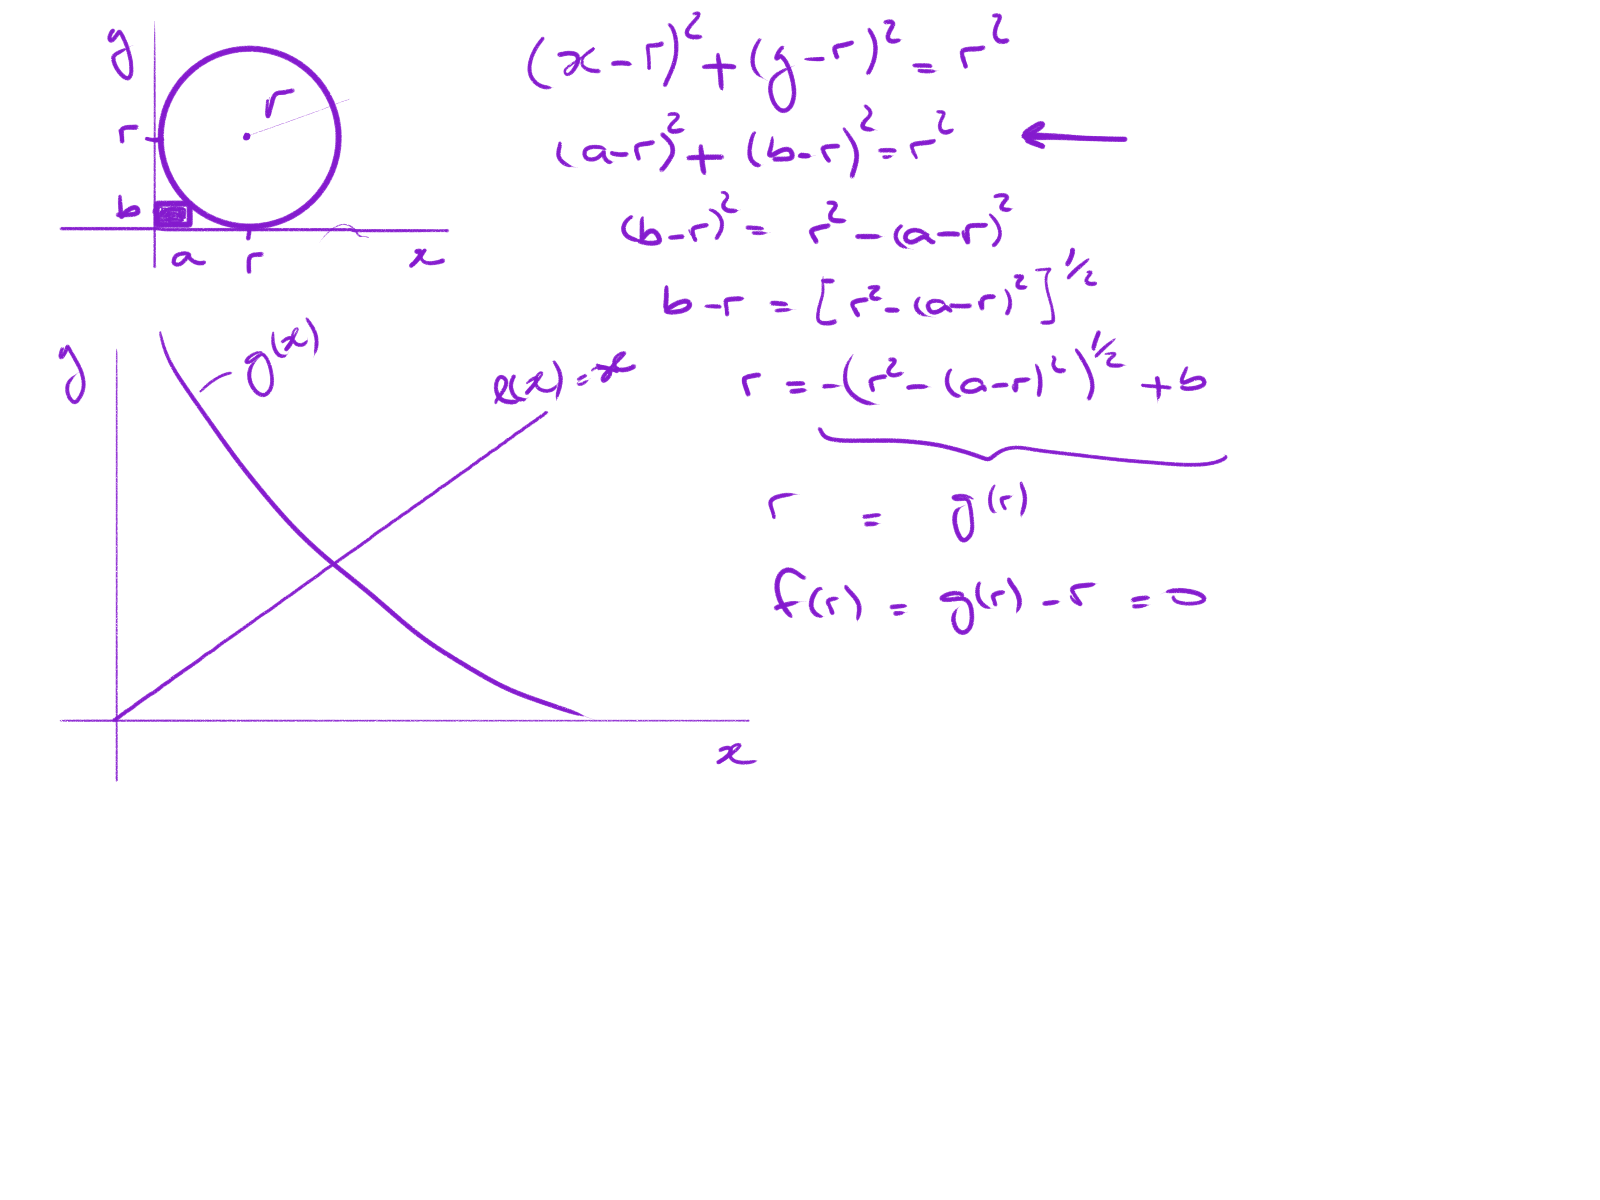 y
r
r
b
a r x
(x-r)² + (y-r)² = r²
(a-r)² + (b-r)² = r² ←
(b-r)² = r² - (a-r)²
b-r = [r² - (a-r)²]^1/2
r = -(r² - (a-r)²)^1/2 + b
r = g(r)
f(r) = g(r) - r = 0
y
g(x)
l(x) = x
x